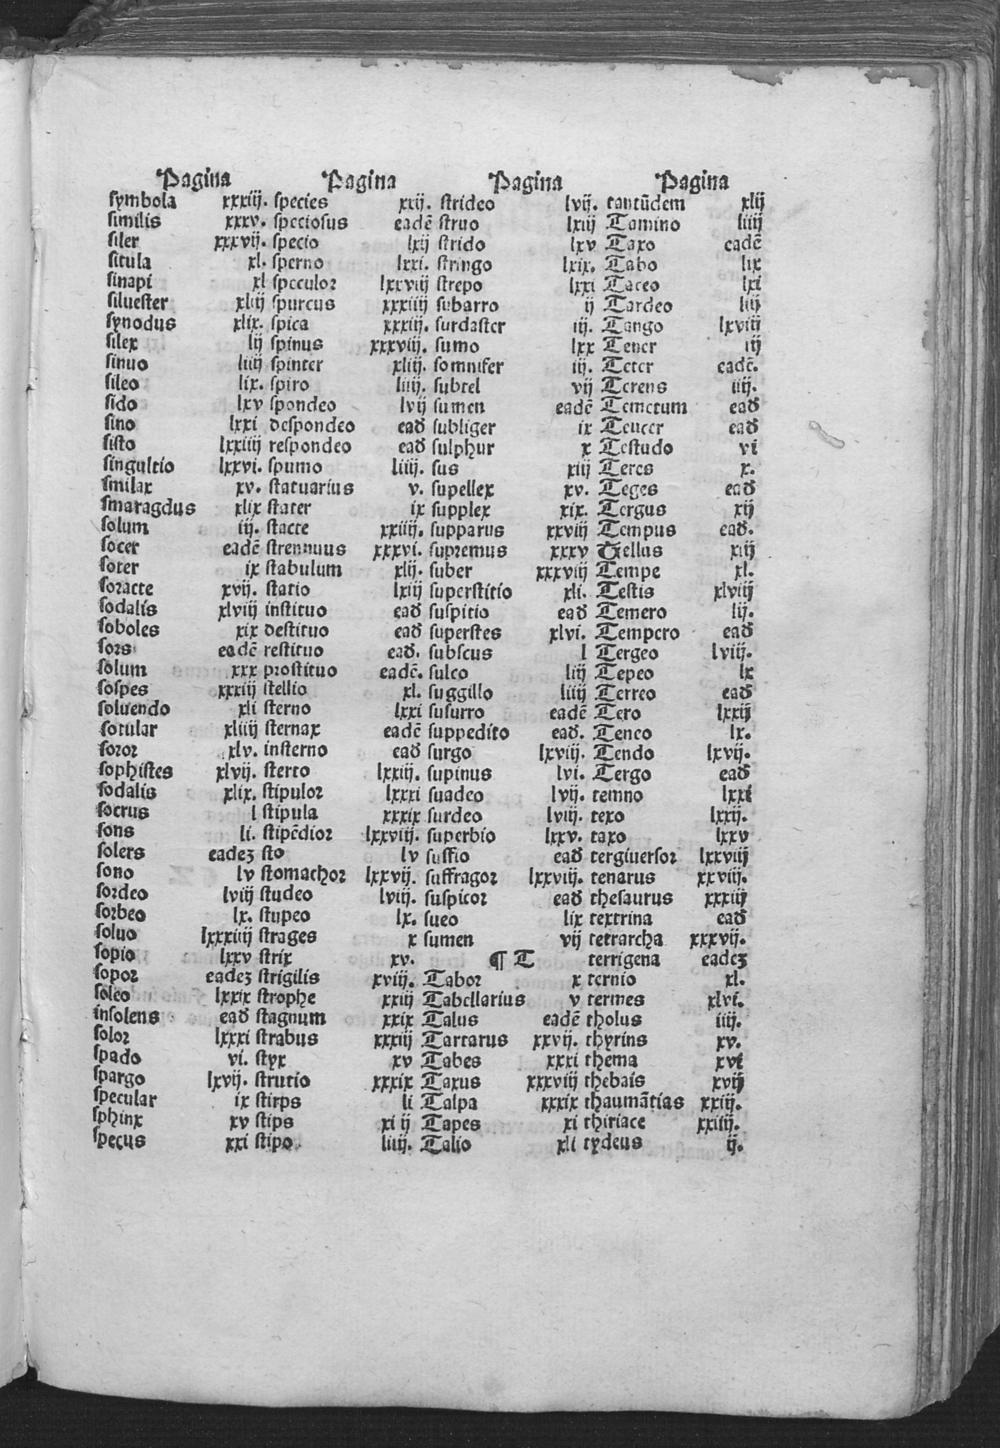 Pagina
symbola xxxiij.
similis xxxv.
siler xxxvij.
situla xl.
sinapi xl
siluester xliij
synodus xlix.
silex lij
sinuo liiij
sileo lix.
sido lxv
sino lxxi
sisto lxxiiij
singultio lxxvi.
smilax xv.
smaragdus xlix
solum iij.
socer eadē
soter ix
soracte xvij.
sodalis xlviij
soboles xix
sors eadē
solum xxx
sospes xxxiij
soluendo xli
sotular xliiij
soror xlv.
sophistes xlvij.
sodalis xlix.
socrus l
sons li.
solers eadeʒ
sono lv
sordeo lviij
sorbeo lx.
soluo lxxxiiij
sopio lxxv
sopor eadeʒ
soleo lxxix
insolens eaḋ
solor lxxxi
spado vi.
spargo lxvij.
specular ix
sphinx xv
specus xxi
Pagina
species xxij.
speciosus eadē
specio lxij
sperno lxxi.
speculor lxxviij
spurcus xxxiiij
spica xxxiij.
spinus xxxviij.
spinter xliij.
spiro liiij.
spondeo lvij
despondeo eaḋ
respondeo eaḋ
spumo liiij.
statuarius v.
stater ix
stacte xxiiij.
strennuus xxxvi.
stabulum xlij.
statio lxiij
instituo eaḋ
destituo eaḋ
restituo eaḋ.
prostituo eadē.
stellio xl.
sterno lxxi
sternax eadē
insterno eaḋ
sterto lxxiij.
stipulor lxxxi
stipula xxxix
stipēdior lxxviij.
sto lv
stomachor lxxvij.
studeo lviij.
stupeo lx.
strages x
strix xv.
strigilis xviij.
strophe xxij
stagnum xxix
strabus xxxiij
styx xv
strutio xxxix
stirps li
stips xi ij
stipo. liiij.
Pagina
strideo lvij.
struo lxiij
strido lxv
stringo lxix.
strepo lxxi
subarro ij
surdaster iij.
sumo lxx
somnifer iij.
subtel vij
sumen eadē
subliger ix
sulphur x
sus xiij
supellex xv.
supplex xix.
supparus xxviij
supremus xxxv
suber xxxviij
superstitio xli.
suspitio eaḋ
superstes xlvi.
subscus l
sulco liij
suggillo liiij
susurro eadē
suppedito eaḋ.
surgo lxviij.
supinus lvi.
suadeo lvij.
surdeo lviij.
superbio lxxv.
suffio eaḋ
suffragor lxxviij.
suspicor eaḋ
sueo lix
sumen vij
¶ T
Tabor x
Tabellarius v
Talus eadē
Tartarus xxvij.
Tabes xxxi
Taxus xxxviij
Talpa xxxix
Tapes xi
Talio xli
Pagina
tantūdem xlij
Tamino liiij
Taxo eadē
Tabo lix
Taceo lxi
Tardeo liij
Tango lxviij
Tener iij
Teter eadē.
Terens iij.
Temetum eaḋ
Teucer eaḋ
Testudo vi
Teres x.
Teges eaḋ
Tergus xij
Tempus eaḋ.
Tellus xiij
Tempe xl.
Testis xlviij
Temero lij.
Tempero eaḋ
Tergeo lviij.
Tepeo lx
Terreo eaḋ
Tero lxxij
Teneo lx.
Tendo lxvij.
Tergo eaḋ
temno lxxi
texo lxxij.
taxo lxxv
tergiuersor lxxviij
tenarus xxviij.
thesaurus xxxiij
textrina eaḋ
tetrarcha xxxvij.
terrigena eadeʒ
ternio xl.
termes xlvi.
tholus iiij.
thyrins xv.
thema xvi
thebais xvij
thaumātias xxiij.
thiriace xxiiij.
tydeus ij.